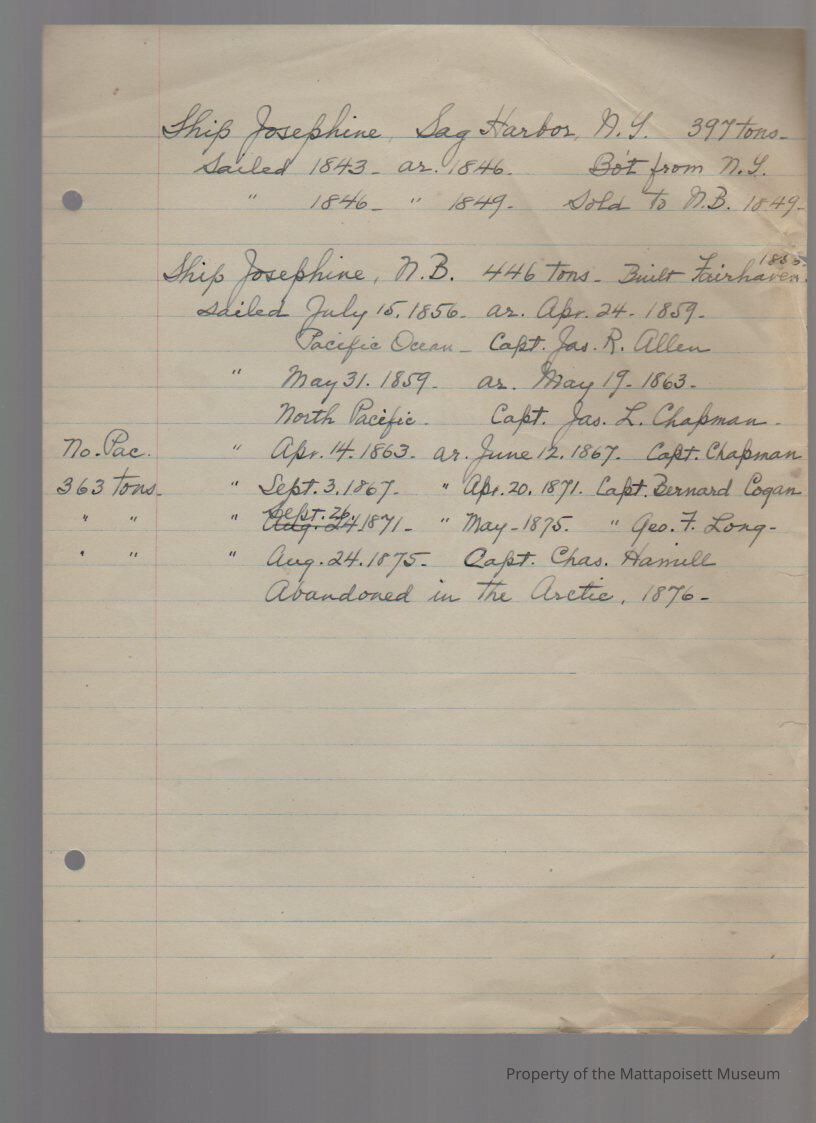 Ship Josephine, Sag Harbor, N.Y. 397 tons-
Sailed 1843- ar. 1846. Bo't from N.Y.
" 1846- " 1849- Sold to N.B. 1849-
1855-
Ship Josephine, N.B. 446 tons- Built Fairhaven.
Sailed July 15. 1856- ar. Apr. 24- 1859-
Pacific Ocean- Capt. Jas. R. Allen
" May 31. 1859- ar. May 19- 1863-
North Pacific. Capt. Jas. L. Chapman-
No. Pac. " Apr. 14. 1863- ar. June 12. 1867. Capt. Chapman
363 tons- " Sept. 3. 1867- " Apr. 20. 1871. Capt. Bernard Cogan
Sept. 26.
" " " Aug. 24 1871- " May-1875. " Geo. F. Long-
" " " Aug. 24. 1875- Capt. Chas. Hamill
Abandoned in the Arctic, 1876-
Property of the Mattapoisett Museum